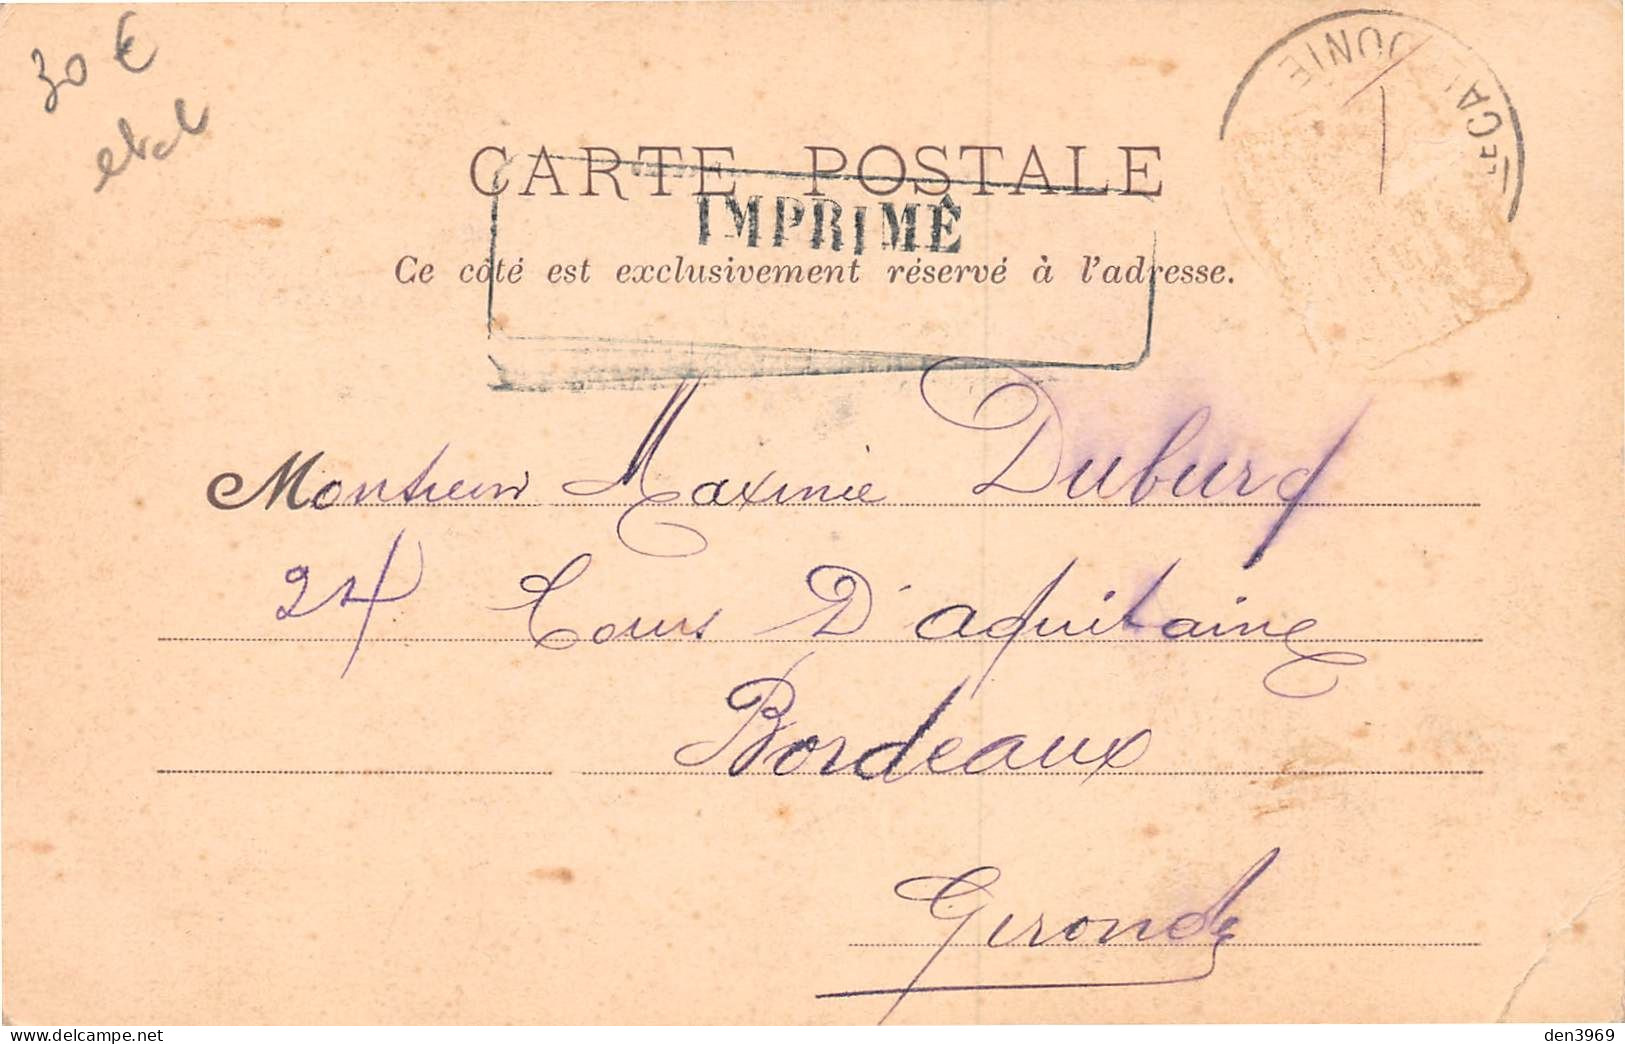 30 €
Lle CALÉDONIE
CARTE POSTALE
IMPRIMÉ
Ce côté est exclusivement réservé à l'adresse.
Monsieur Maxime Duburg
24 Cours D'aquitaine
Bordeaux
Gironde
den3969